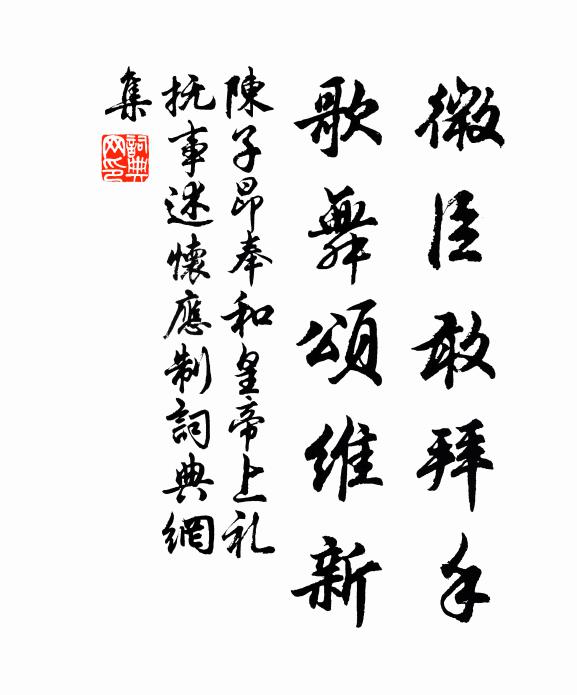 微臣敢拜手
歌舞頌維新
陳子昂奉和皇帝上礼
撫事述懷應制詞典網
集
詞典網印